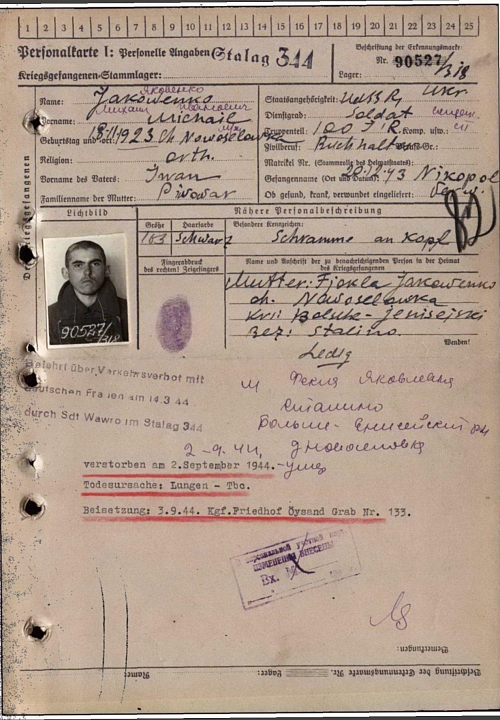 1 2 3 4 5 6 7 8 9 10 11 12 13 14 15 16 17 18 19 20 21 22 23 24 25
Personalkarte I: Personelle Angaben
Stalag 344
Kriegsgefangenen-Stammlager:
Beschriftung der Erkennungsmarke
Nr. 90527/318
Lager:
Яковенко
Name: Jakowenko
Михаил Иванович
Vorname: Michail
Geburtstag und -ort: 18.11.1923 Ch. Nowoselowka
Religion: orth.
Vorname des Vaters: Iwan
Familienname der Mutter: Piwowar
Staatsangehörigkeit: UdSSR, Ukr.
Dienstgrad: Soldat
Truppenteil: 100 I/R. Komp. usw.
Zivilberuf: Buchhalter
Matrikel Nr. (Stammrolle des Heimatstaates):
Gefangennahme (Ort und Datum): 20.12.43 Nikopol
Ob gesund, krank, verwundet eingeliefert:
Der Kriegsgefangenen
Lichtbild
Nähere Personalbeschreibung
Größe
Haarfarbe
Besondere Kennzeichen:
163
Schwarz
Schramme an Kopf
Fingerabdruck
des rechten! Zeigefingers
Name und Anschrift der zu benachrichtigenden Person in der Heimat
des Kriegsgefangenen
Mutter: Fjokla Jakowenko
ch. Nowoselowka
Bez. Stalino
Wenden!
Ledig
90527/318
Belehrt über Verkehrsverbot mit
deutschen Frauen am 14.3.44
durch Sdf Wawro im Stalag 344
м Фекла Яковлевна
Сталино
Больше-Енисейский
д Новоселовка
2-9-44,
verstorben am 2.September 1944.-
умер
Todesursache: Lungen - Tbc.
Beisetzung: 3.9.44. Kgf.Friedhof Öysand Grab Nr. 133.
ИЗМЕНЕНИЯ ВНЕСЕНЫ
Вх. №
Bemerkungen:
Beschriftung der Erkennungsmarke Nr.
Lager:
Name: